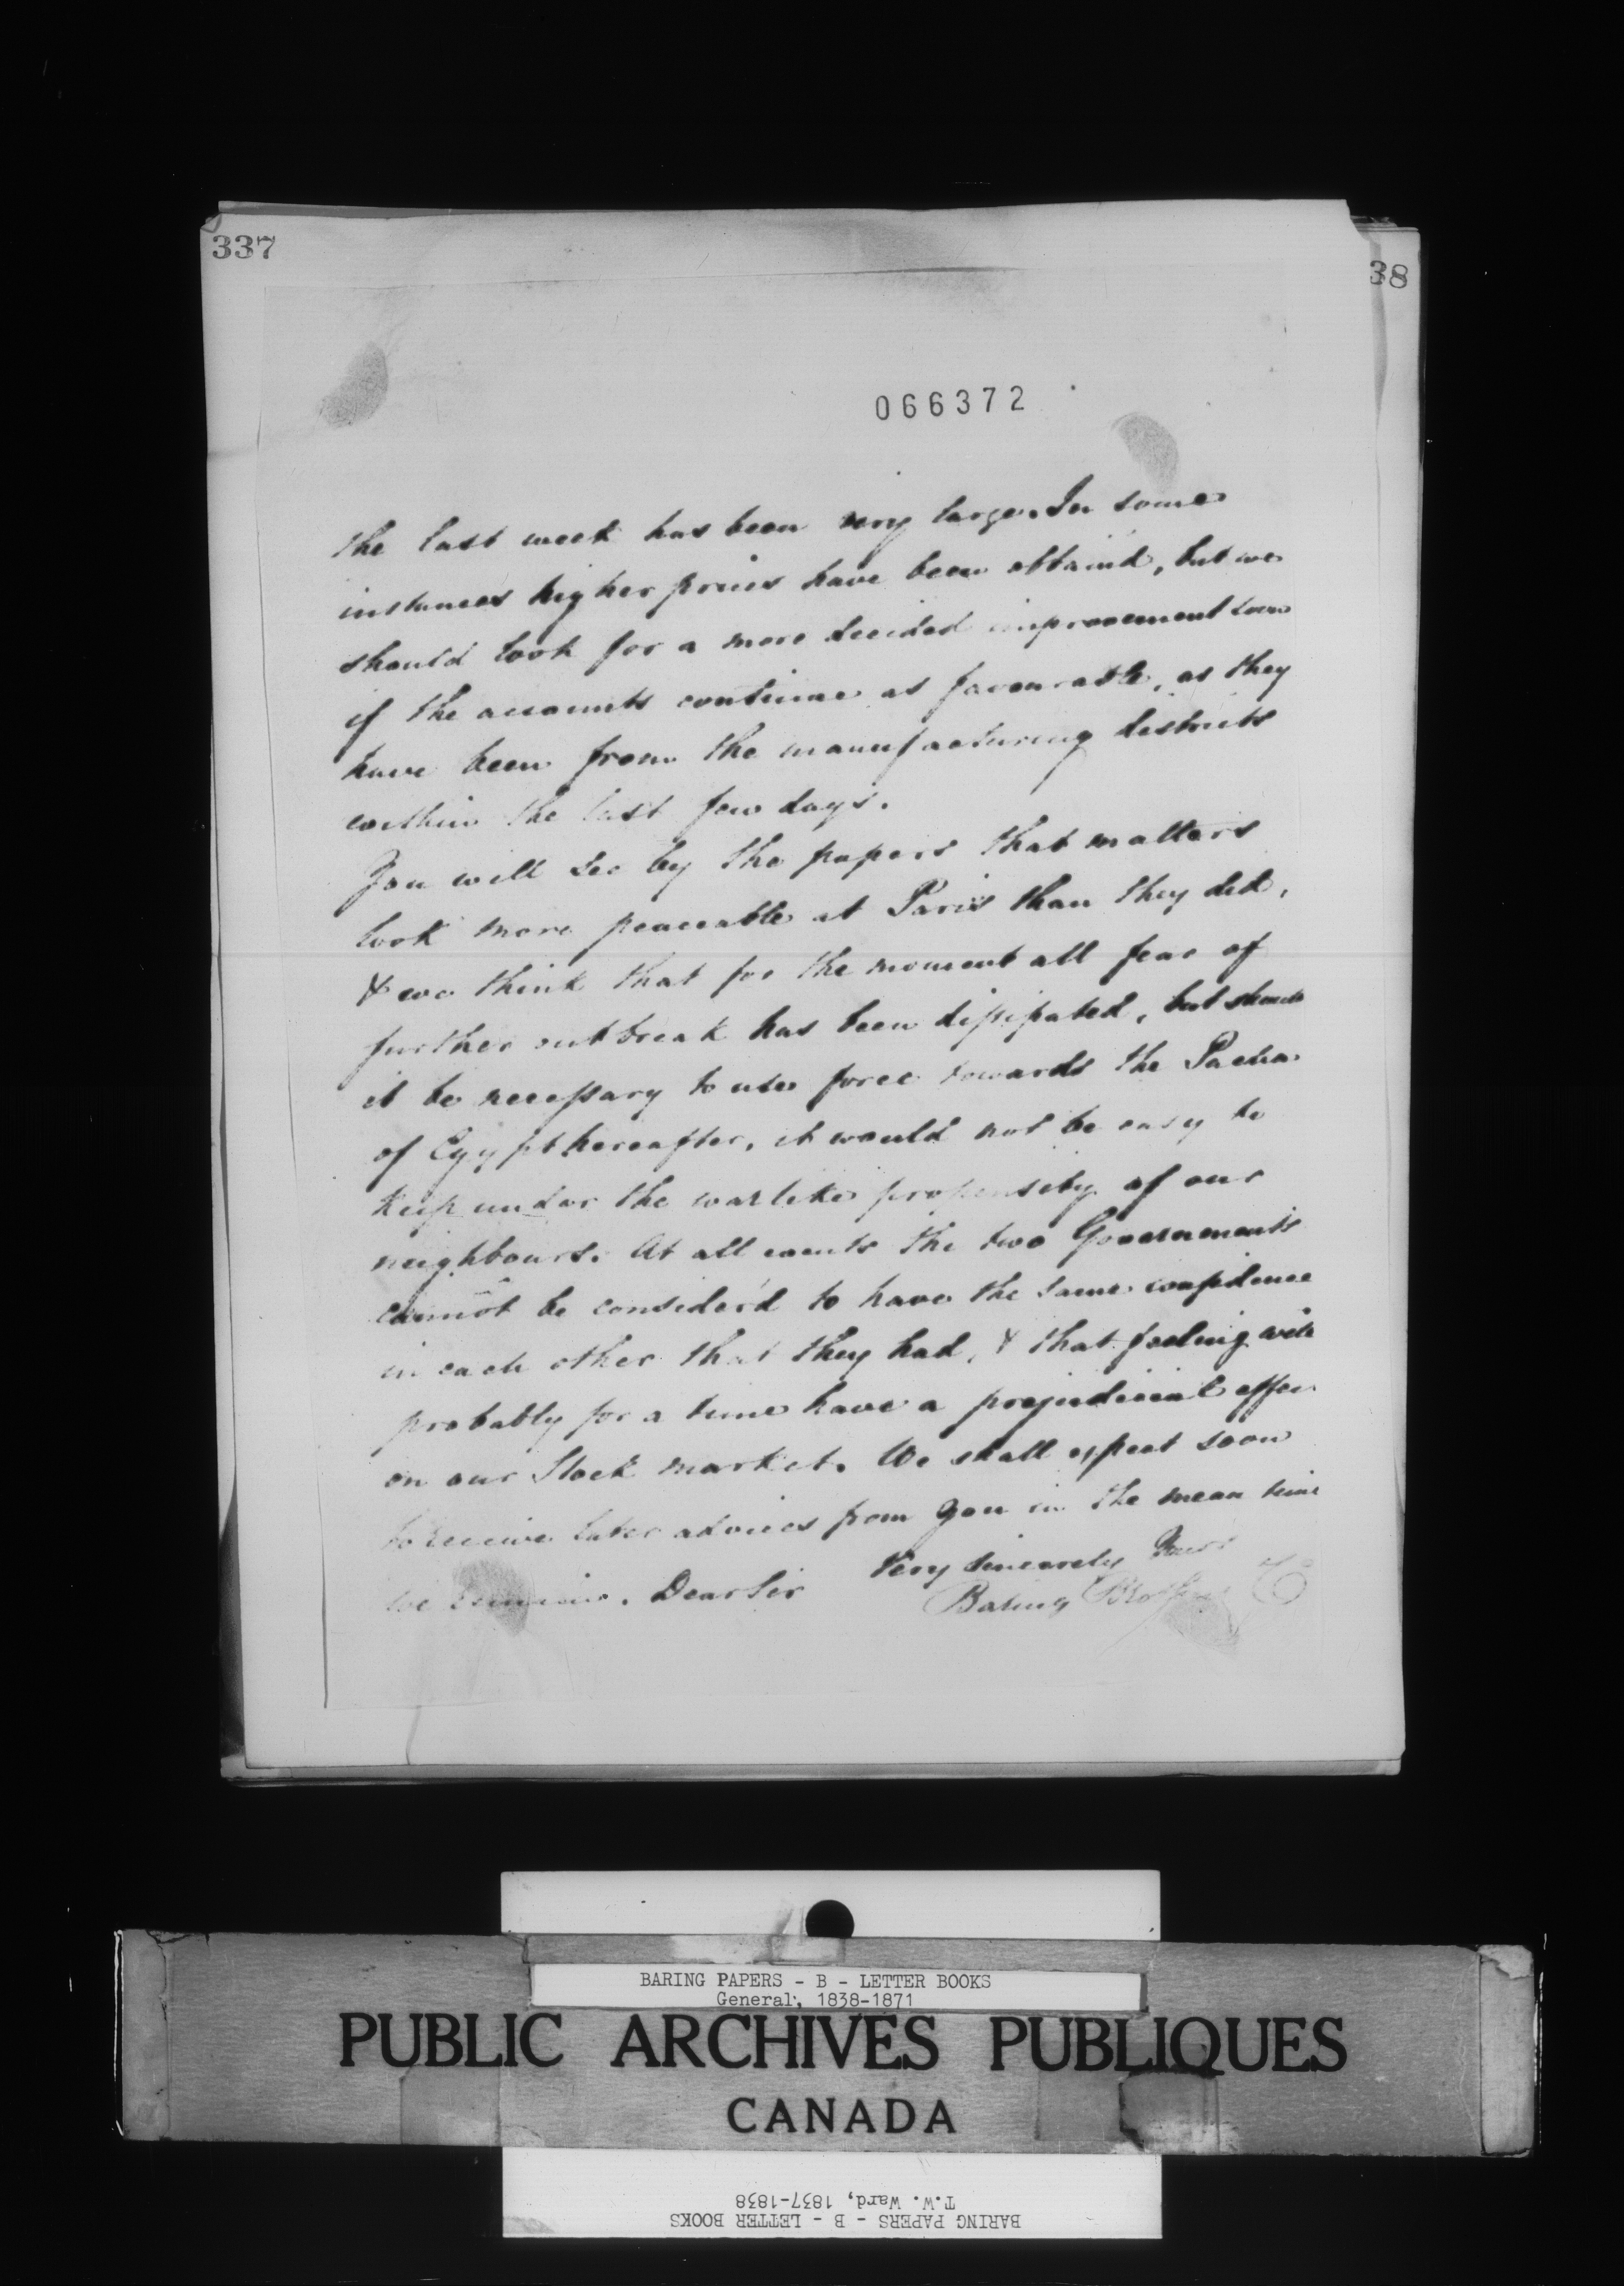 337
38
066372
the last week has been very large. In some
instances higher prices have been obtain'd, but we
should look for a more decided improvement soon
if the accounts continue as favourable, as they
have been from the manufacturing districts
within the last few days.
You will see by the papers that matters
look more peaceable at Paris than they did,
& we think that for the moment all fear of
further outbreak has been dissipated, but should
it be necessary to use force towards the Pacha
of Egypt hereafter, it would not be easy to
keep under the warlike propensity of our
neighbours. At all events the two Governments
cannot be consider'd to have the same confidence
in each other that they had, & that feeling will
probably for a time have a prejudicial effect
on our Stock market. We shall expect soon
to receive later advices from you in the mean time
we remain. Dear Sir Very sincerely Yours
Baring Brothers & Co
BARING PAPERS - B - LETTER BOOKS
General, 1838-1871
PUBLIC ARCHIVES PUBLIQUES
CANADA
BARING PAPERS - B - LETTER BOOKS
T.W. Ward, 1837-1838